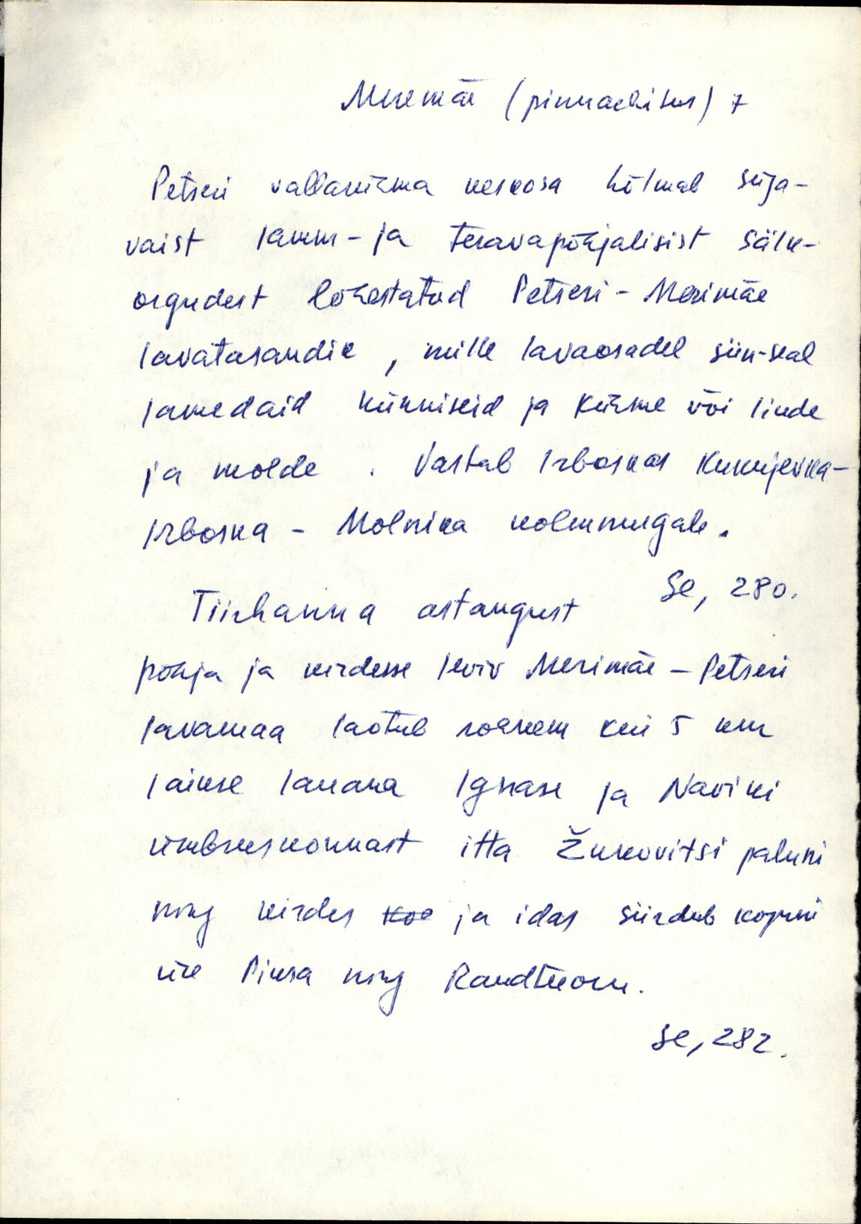 Meremäe (pinnaehitus) 7
Petseri vallavõrma keskosa hõlmab süga-
vaist lamm- ja teravapõhjalisist sälk-
orgudest lõhestatud Petseri - Merimäe
lavatasandik, mille lavaosadel siin-seal
lamedaid künniseid ja kühme või linde
ja molde. Vastab Irboskas
Irboska - Molnika kolmnurgale.
Se, 280.
Tiirhanna astangust
põhja ja kirdesse leviv Merimäe - Petseri
lavamaa laotub rohkem kui 5 km
laiuse lavana Ignase ja Naviki
ümbruskonnast itta Žukovitsi paluni
ning kirdes koo ja idas siirdub koguni
üle Piusa ning Raudtuoru.
Se, 282.